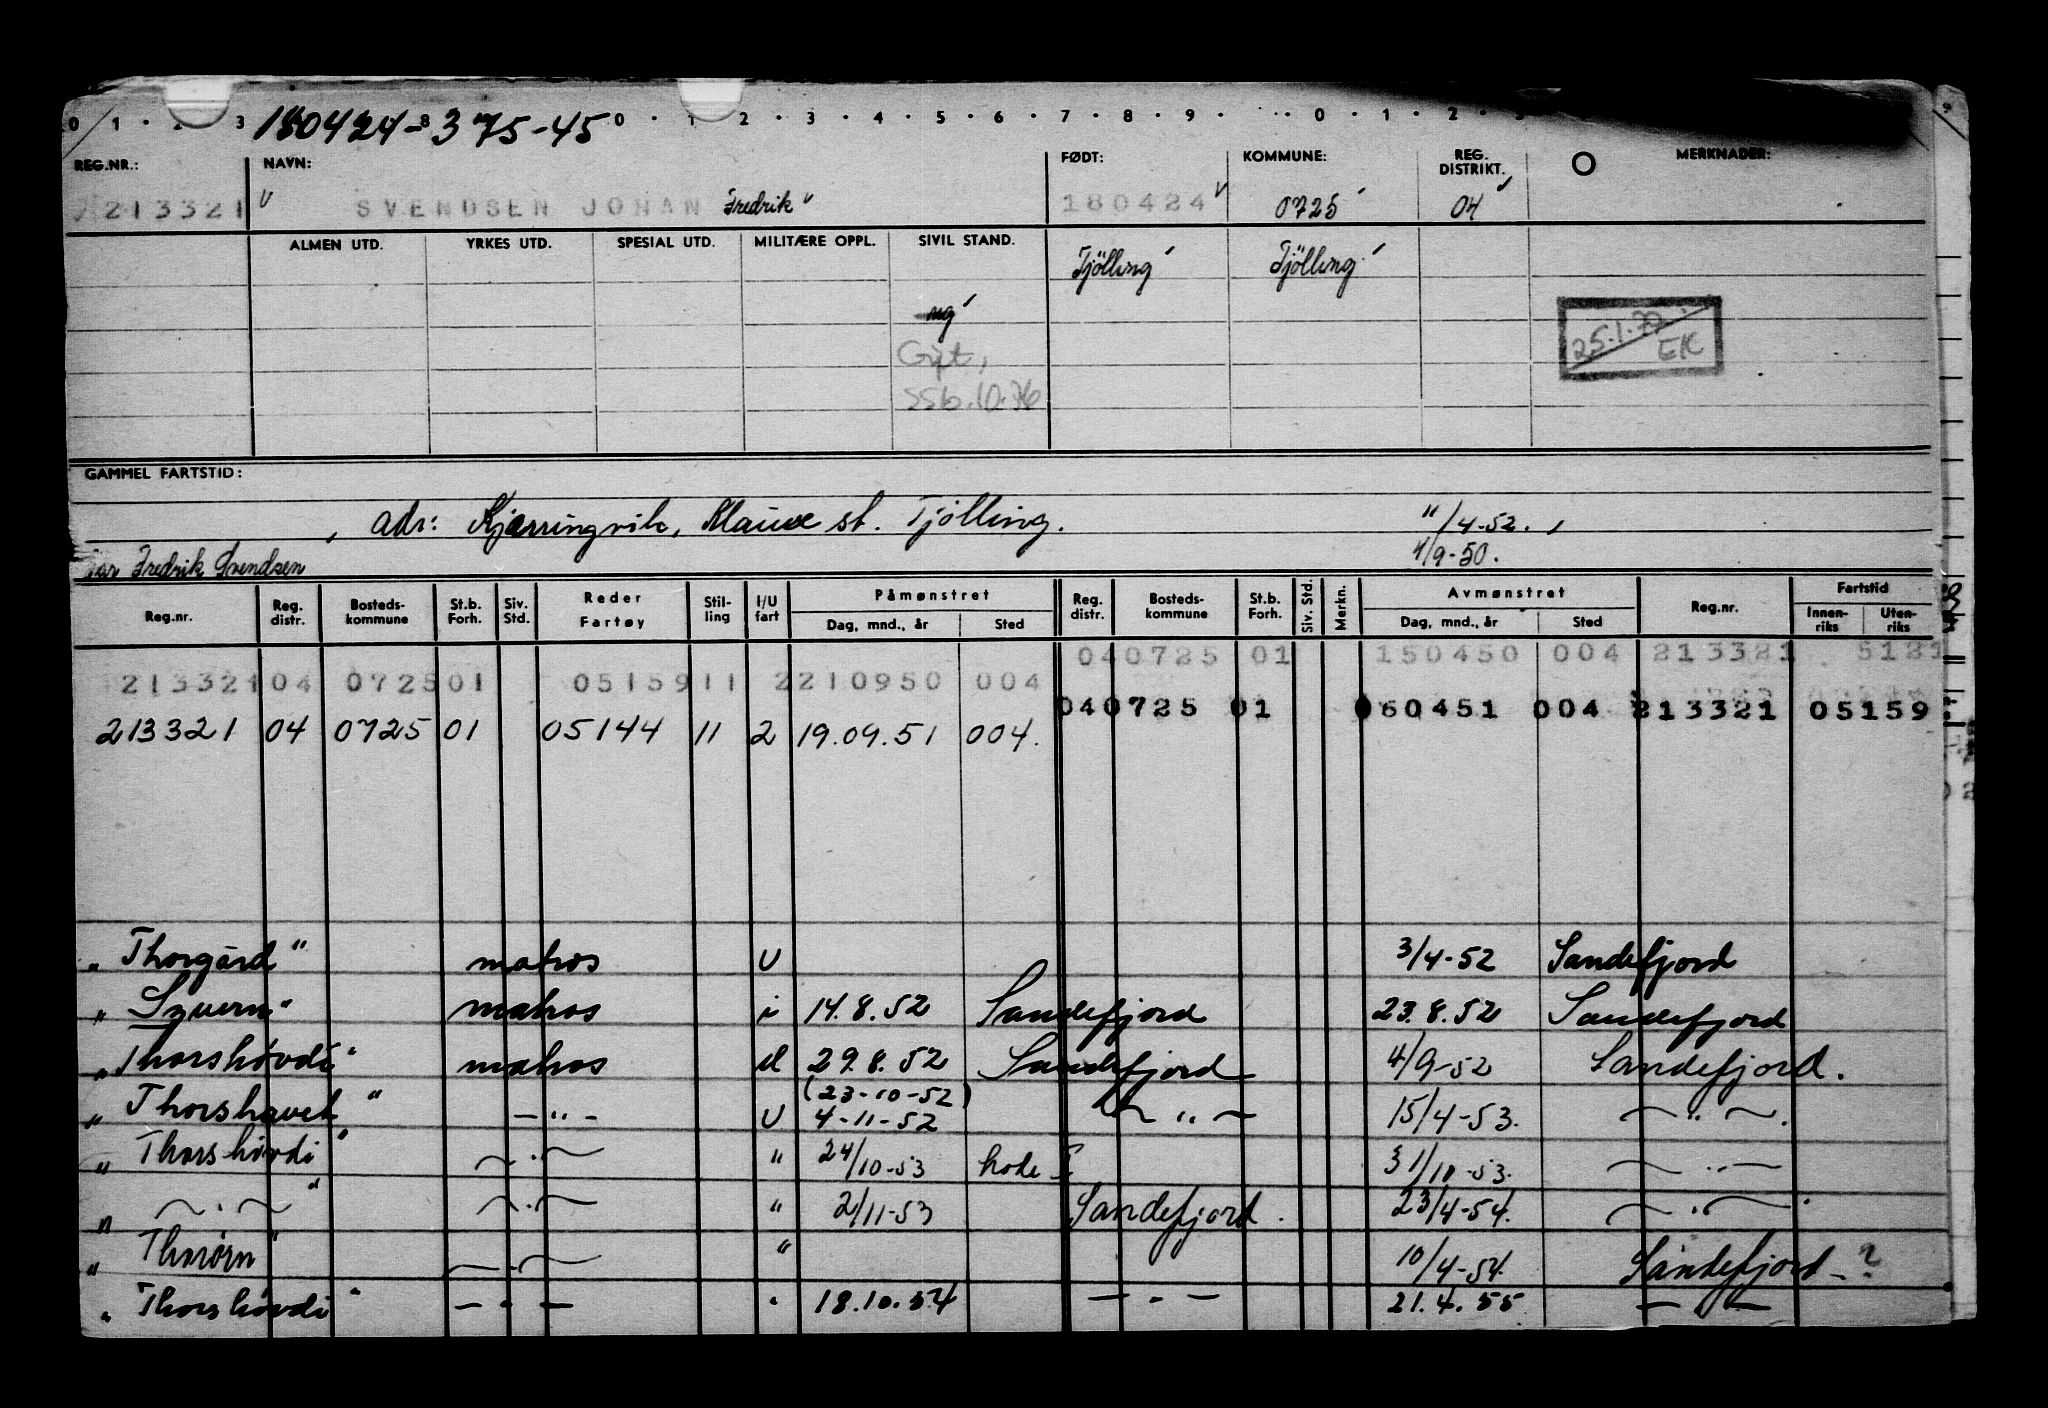 0 1 · 2 3 180424-37545 0 · 1 2 · 3 · 4 · 5 · 6 · 7 · 8 · 9 · · 0 · 1 · 2 ·
REG.NR.: NAVN: FØDT: KOMMUNE: REG. DISTRIKT. MERKNADER:
213321 SVENDSEN JOHAN Fredrik 180424 0725 04
ALMEN UTD. YRKES UTD. SPESIAL UTD. MILITÆRE OPPL. SIVIL STAND. Tjölling Tjölling
ug
Gift, 25.1.77
SSb.10.76 EK
GAMMEL FARTSTID:
, adr: Kjærringvik, Klauve st. Tjölling. "/4-52. ,
Fredrik Svendsen 4/9-50.
Reg.nr. Reg. distr. Bosteds-kommune St.b. Forh. Siv. Std. Reder Fartøy Stil-ling I/U fart Påmønstret Dag, mnd., år Sted Reg. distr. Bosteds-kommune St.b. Forh. Siv. Std. Merkn. Avmønstret Dag, mnd., år Sted Reg.nr. Fartstid Innen-riks Uten-riks
040725 01 150450 004 213321 5121
213321 04 0725 01 05159 11 2 210950 004
040725 01 060451 004 213321 05159
213321 04 0725 01 05144 11 2 19.09.51 004.
„Thorgård" matros U 3/4-52 Sandefjord
„Szvern" matros i 14.8.52 Sandefjord 23.8.52 Sandefjord
„Thorshövdi" matros U 29.8.52 Sandefjord 4/9-52 Sandefjord.
(23-10-52)
„Thorshavet" -"- U 4-11-52 -"- 15/4-53. -"-.
„Thorshövdi" -"- " 24/10-53 31/10-53. -"-
„ -"- " -"- " 2/11-53 Sandefjord. 23/4-54. -"-
„Thorörn" -"- " 10/4-54. Sandefjord-?
„Thorshövdi" -"- " 18.10.54 -"- 21.4.55 -"-